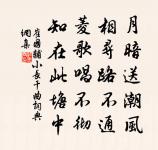 月暗送潮風
相尋路不通
菱歌唱不徹
知在此塘中
崔國輔小長干曲詞典
網集